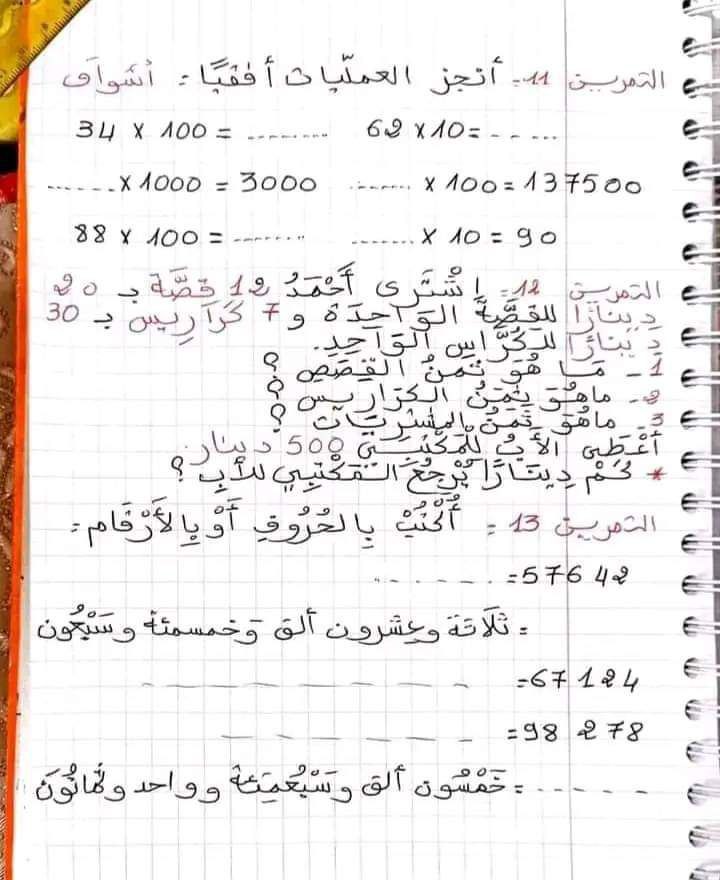 التمرين 11: أنجز العمليات أفقيًا: أشواق
34 x 100 = ......... 62 x 10 = .....
...... x 1000 = 3000 ...... x 100 = 137500
88 x 100 = ........ ....... x 10 = 90
التمرين 12: إشْتَرَى أَحْمَدُ 12 قصَّة بـ 20
دِينَارًا للقصَّة الوَاحِدَة و 7 كَرَارِيس بـ 30
دِينَارًا للكُرَّاسِ الوَاحِدِ.
1- مَا هُوَ ثَمَنُ القِصَصِ ؟
2- ماهُوَ ثَمَنُ الكرَارِيس ؟
3- ماهُوَ ثَمَنُ المشتريات ؟
أَعْطَى الأَبُ للمَكْتَبِي 500 دينار
* كَمْ دِينَارًا يُرْجِعُ المَكْتَبِي للأَبِ ؟
التمرين 13: أُكْتُبْ بِالحُرُوفِ أَوْ بِالأَرْقَام:
57642 = .......
= ثَلَاثَة وعِشرون ألق وَخمسمئة وسَبْعُون
67124 = _ _ _ _ _ _ _
98278 = _ _ _ _ _ _
..... = خَمْسُون ألق وسَبْعُمِئة وواحد وثمانُونَ